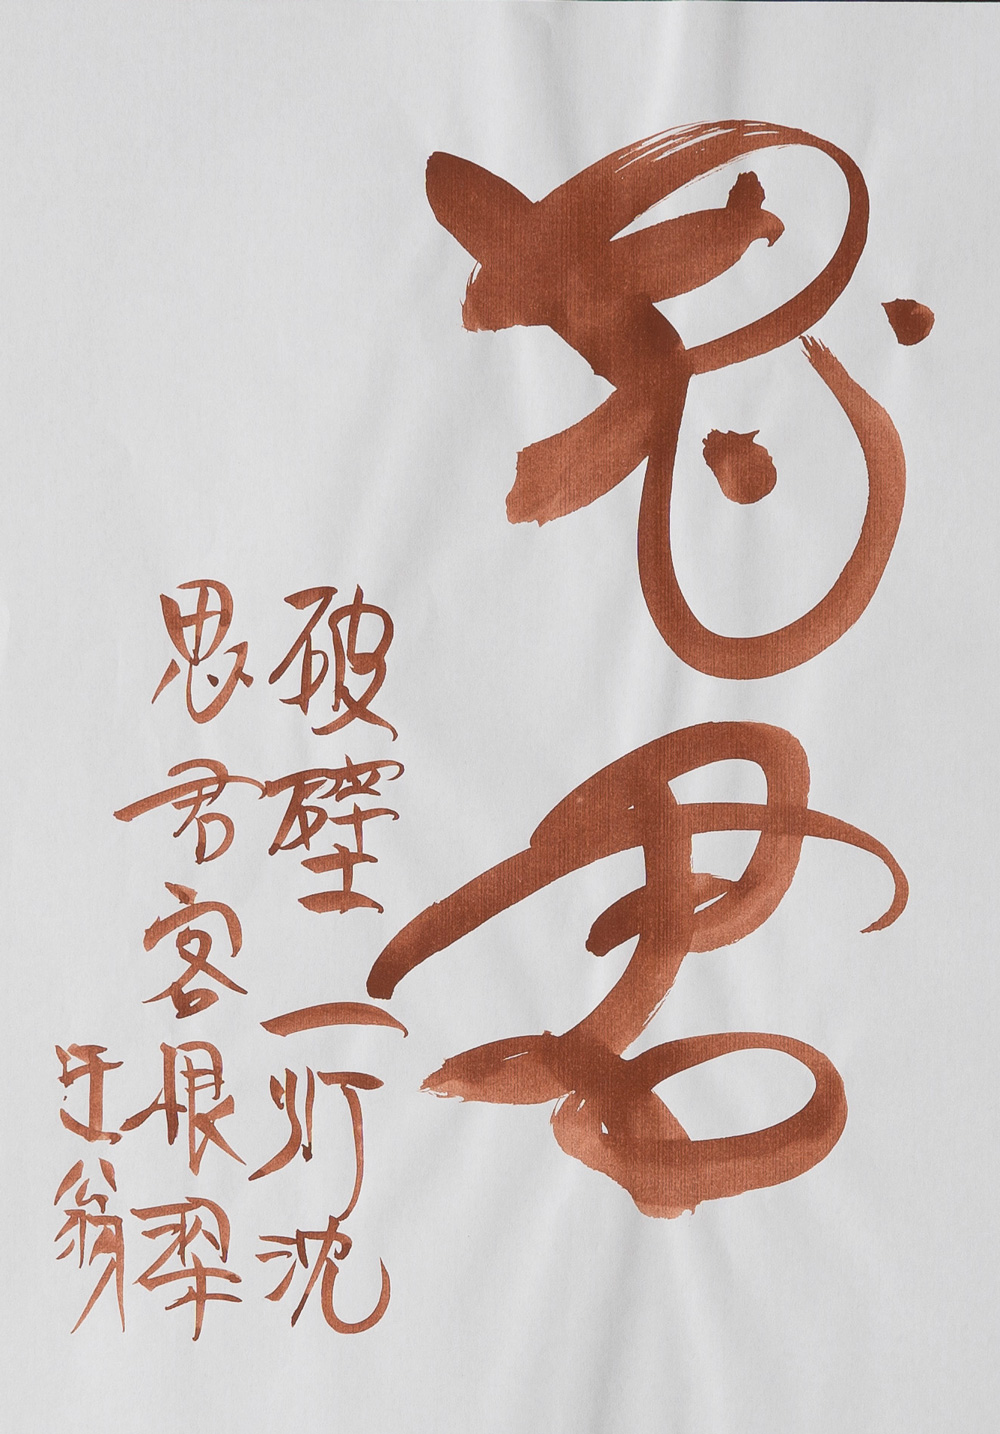 思君
破壁一灯沈
思君客恨翠
迂翁